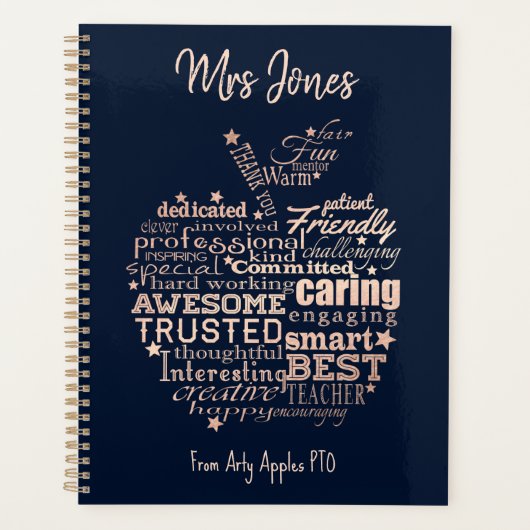 Mrs Jones
fair
Fun
mentor
Warm
THANK YOU
patient
dedicated
Friendly
clever involved
professional
challenging
INSPIRING kind
special Committed
hard working caring
AWESOME engaging
TRUSTED smart
thoughtful BEST
Interesting
creative TEACHER
happy encouraging
From Arty Apples PTO